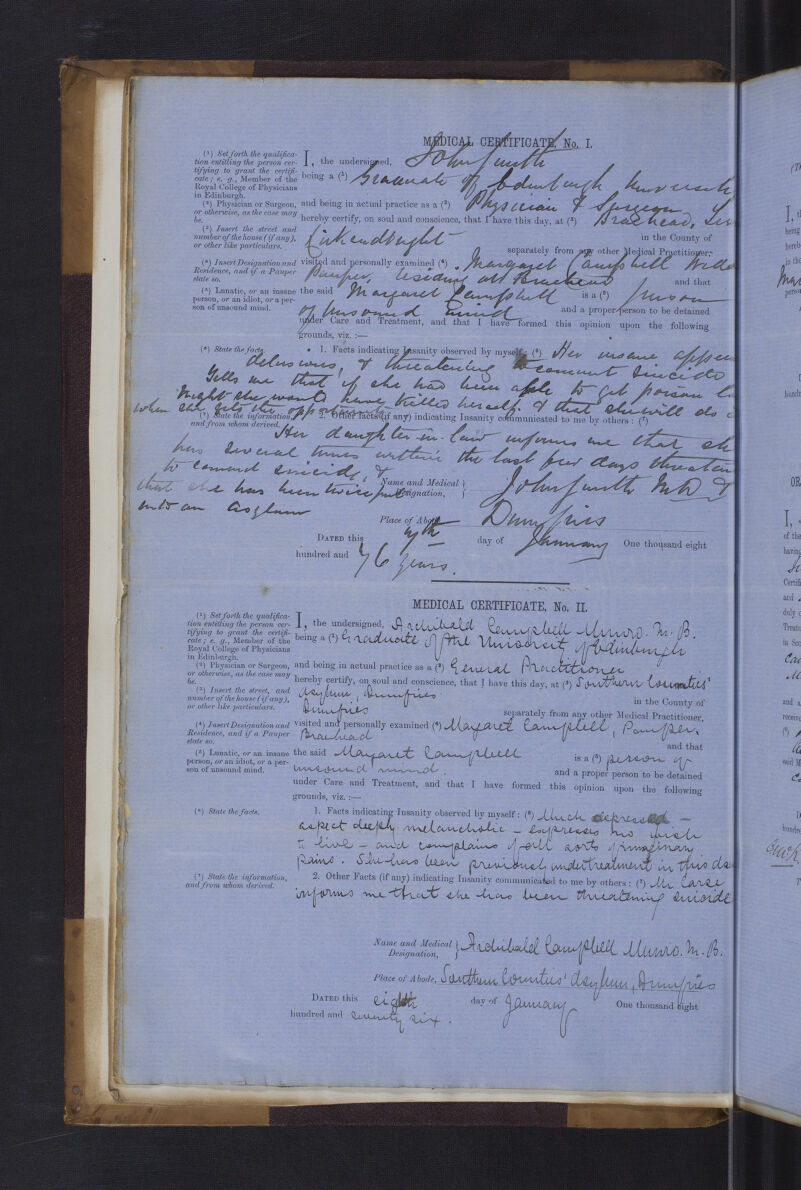 MEDICAL CERTIFICATE, No. I.
(¹) Set forth the qualifica-
tion entitling the person cer-
tifying to grant the certifi-
cate; e. g., Member of the
Royal College of Physicians
in Edinburgh.
(²) Physician or Surgeon,
or otherwise, as the case may
be.
(³) Insert the street and
number of the house (if any),
or other like particulars.
(⁴) Insert Designation and
Residence, and if a Pauper
state so.
(⁵) Lunatic, or an insane
person, or an idiot, or a per-
son of unsound mind.
(⁶) State the facts.
(⁷) State the information,
and from whom derived.
I, the undersigned, John Smith
being a (¹) Graduate of Edinburgh University
and being in actual practice as a (²) Physician & Surgeon
hereby certify, on soul and conscience, that I have this day, at (³) Braehead,
Kirkcudbright in the County of
separately from any other Medical Practitioner,
visited and personally examined (⁴) Margaret Campbell
Pauper, residing at Braehead and that
the said Margaret Campbell is a (⁵) person
of unsound mind and a proper person to be detained
under Care and Treatment, and that I have formed this opinion upon the following
grounds, viz. :—
1. Facts indicating Insanity observed by myself: (⁶) Her insane
delusions, & threatening to commit suicide
Tells me that if she had been able to get poison
night she would have killed herself & that she will do
when she gets the opportunity
2. Other facts (if any) indicating Insanity communicated to me by others: (⁷)
Her daughter-in-law informs me that
has several times within the last few days
to commit suicide, &
that she has been twice put
into an asylum
Name and Medical Designation, John Smith M.D
Place of Abode Dumfries
DATED this 7th day of January One thousand eight
hundred and 76 years.
MEDICAL CERTIFICATE, No. II.
(¹) Set forth the qualifica-
tion entitling the person cer-
tifying to grant the certifi-
cate; e. g., Member of the
Royal College of Physicians
in Edinburgh.
(²) Physician or Surgeon,
or otherwise, as the case may
be.
(³) Insert the street, and
number of the house (if any),
or other like particulars.
(⁴) Insert Designation and
Residence, and if a Pauper
state so.
(⁵) Lunatic, or an insane
person, or an idiot, or a per-
son of unsound mind.
(⁶) State the facts.
(⁷) State the information,
and from whom derived.
I, the undersigned, Archibald Campbell Munro. M. B.
being a (¹) Graduate of the University of Edinburgh
and being in actual practice as a (²) General Practitioner
hereby certify, on soul and conscience, that I have this day, at (³) Southern Counties'
Asylum, Dumfries in the County of
Dumfries separately from any other Medical Practitioner,
visited and personally examined (⁴) Margaret Campbell, Pauper,
Braehead and that
the said Margaret Campbell is a (⁵) person of
unsound mind. and a proper person to be detained
under Care and Treatment, and that I have formed this opinion upon the following
grounds, viz. :—
1. Facts indicating Insanity observed by myself: (⁶) Much depressed –
aspect deeply melancholic – expresses no wish
to live – and complains of all sorts of imaginary
pains. She has been previously under treatment in this
2. Other Facts (if any) indicating Insanity communicated to me by others: (⁷) Mr
informs me that she has been threatening suicide
Name and Medical Designation, Archibald Campbell Munro. M. B.
Place of Abode, Southern Counties' Asylum, Dumfries
DATED this eighth day of January One thousand eight
hundred and seventy six.